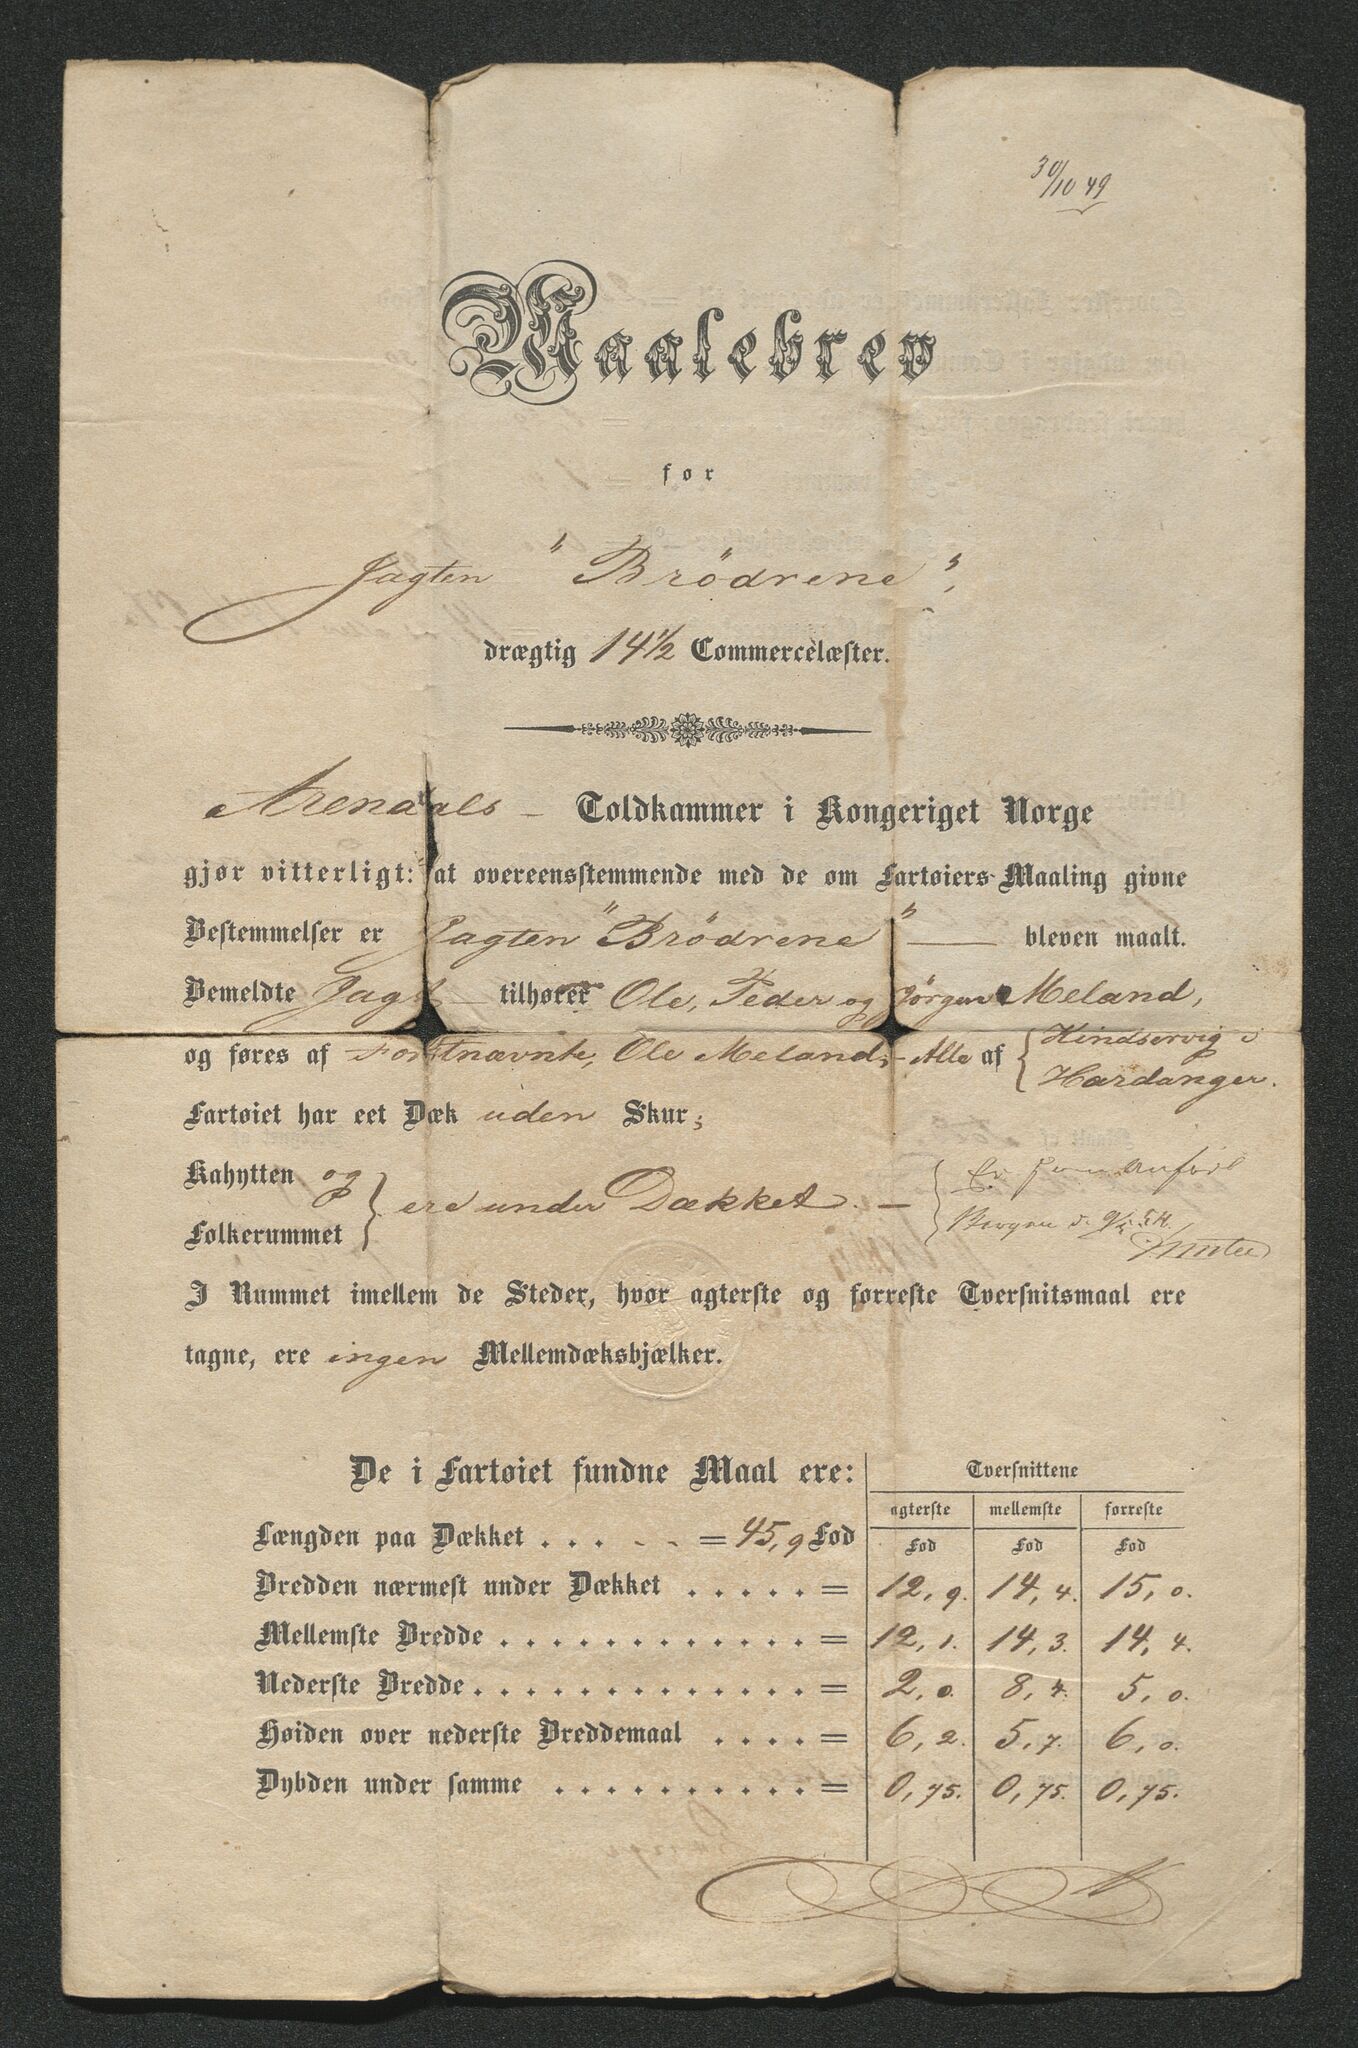 30/10 49
Maalebrev
for
Jagten "Brödrene",
drægtig 14 1/2 Commercelæster.
Arendals - Toldkammer i Kongeriget Norge
gjør vitterligt: at overeensstemmende med de om Fartøiers Maaling givne
Bestemmelser er Jagten "Brödrene" — bleven maalt.
Bemeldte Jagt — tilhører Ole, Peder og Jörgen Meland,
og føres af Forstnævnte, Ole Meland, - Alle af { Kindservig i
Hardanger.
Fartøiet har eet Dæk uden Skur;
Kahytten og
Folkerummet } ere under Dækket. — { Er som Anført
Bergen d.
I Rummet imellem de Steder, hvor agterste og forreste Tversnitsmaal ere
tagne, ere ingen Mellemdæksbjælker.
De i Fartøiet fundne Maal ere: Tversnittene
agterste mellemste forreste
Længden paa Dækket . . . - - = 45,9 Fod Fod Fod Fod
Bredden nærmest under Dækket . . . . . = 12,9. 14,4. 15,0.
Mellemste Bredde . . . . . . . . . . . . = 12,1. 14,3. 14,4
Nederste Bredde . . . . . . . . . . . . . = 2,0. 8,4. 5,0.
Høiden over nederste Breddemaal . . . . = 6,2. 5,7. 6,0.
Dybden under samme . . . . . . . . . . = 0,75. 0,75. 0,75.